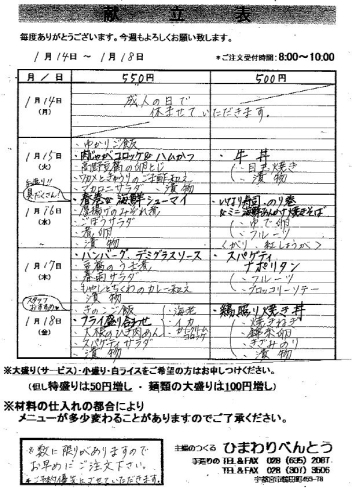 献立表
毎度ありがとうございます。今週もよろしくお願い致します。
1月14日 ～ 1月18日
*ご注文受付時間:8:00～10:00
月/日 550円 500円
1月14日(月)
成人の日で
休ませていただきます。
1月15日(火)
・ゆかりご飯
・肉じゃがコロッケ&ハムカツ
・高野豆腐の卵とじ
・マカロニサラダ ・漬物
・牛丼
・目玉焼き
・漬物
1月16日(水)
・春巻&海鮮シューマイ
・厚揚げのみぞれ煮
・ごぼうサラダ
・煮卵
・漬物
・いなり寿司、のり巻
&ミニ海鮮あんかけ焼きそば
・ゆで卵
・フルーツ
(ガリ、紅しょうが)
1月17日(木)
・ハンバーグ、デミグラスソース
・豆腐のうま煮
・春雨サラダ
・もやしとちくわのカレー和え
・漬物
・スパゲティ
ナポリタン
・フルーツ
・ブロッコリーソテー
スタッフ
おすすめ
1月18日(金)
・きのこご飯
・フライ盛り合せ
・スパゲティサラダ
・漬物
・海老
・イカ
・鶏照り焼き丼
・焼ねぎ
・錦糸卵
・きざみのり
・漬物
※大盛り(サービス)・小盛り・白ライスをご希望の方はお申しつけください。
(但し特盛りは50円増し・麺類の大盛りは100円増し)
※材料の仕入れの都合により
メニューが多少変わることがありますのでご了承ください。
※数に限りがありますので
お早めにご注文下さい。
*ご予約優先にさせていただきます。
主婦のつくる ひまわりべんとう
手造りの TEL&FAX 028 (635) 2087
TEL&FAX 028 (301) 3506